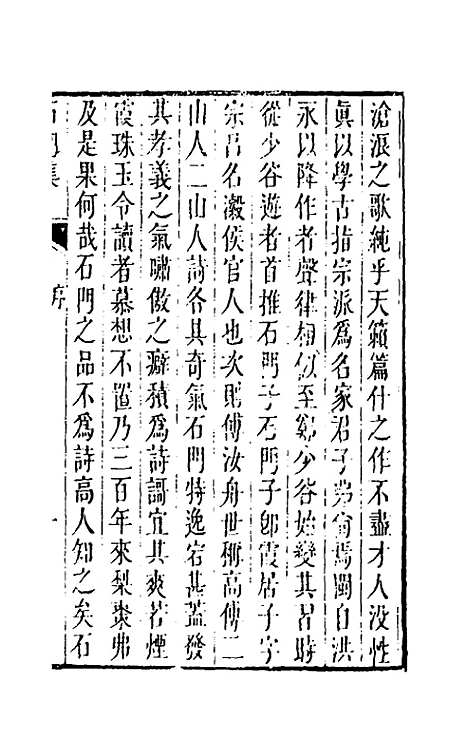 滄浪之歌純乎天籟篇什之作不盡才人没性
眞以學古指宗派爲名家君子弗尚焉閩自洪
永以降作者聲律相似至鄭少谷始變其習時
從少谷遊者首推石門子石門子卽霞居子字
宗呂名瀔侯官人也次則傅汝舟世稱高傅二
山人二山人詩各具奇氣石門特逸宕甚蓋發
其孝義之氣嘯傲之癖積爲詩謌宜其爽若煙
霞珠玉令讀者慕想不置乃三百年來梨棗弗
及是果何哉石門之品不爲詩高人知之矣石
石門集
序
一